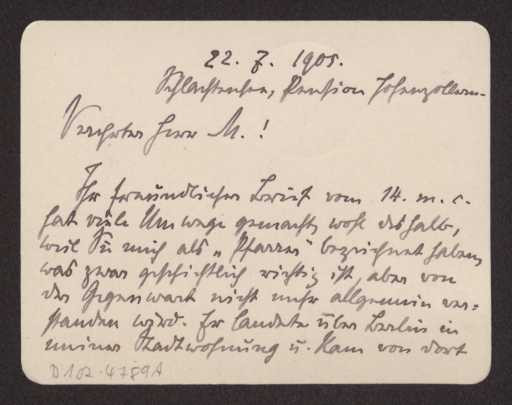 22. 7. 1905.
Schlachtensee, Pension Hohenzollern.
Verehrter Herr M.!
Ihr freundlicher Brief vom 14. m. c.
hat viele Umwege gemacht, wohl deshalb,
weil Sie mich als „Pfarrer“ bezeichnet haben,
was zwar geschichtlich richtig ist, aber von
der Gegenwart nicht mehr allgemein ver=
standen wird. Er landete über Berlin in
meiner Stadtwohnung u. kam von dort
D 102.4789A